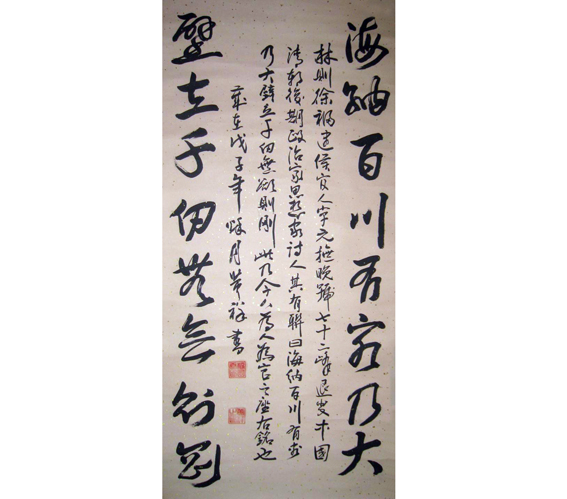 海纳百川有容乃大
林则徐福建侯官人字元抚晚号七十二峰退叟中国
清朝后期政治家思想家诗人其有联曰海纳百川有容
乃大壁立千仞无欲则刚此乃今人为人为官之座右铭也
岁在戊子年秋月 祥书
壁立千仞无欲则刚